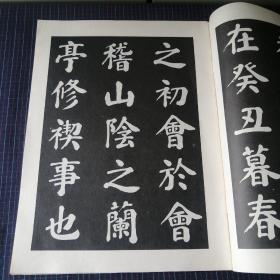 在癸丑暮春
之初會於會
稽山陰之蘭
亭修禊事也